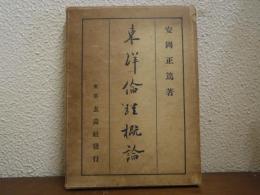 安岡正篤著
東洋倫理概論
東京 玄黄社發行